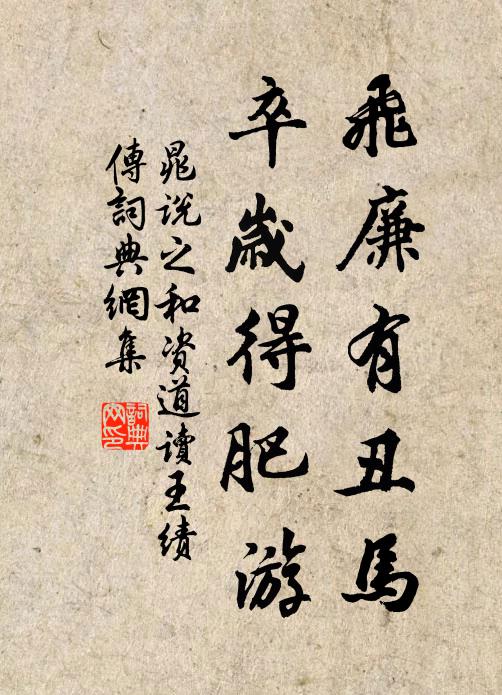 飛廉有丑馬
卒歲得肥游
晁说之和资道讀王绩
傳詞典網集
詞典
网印